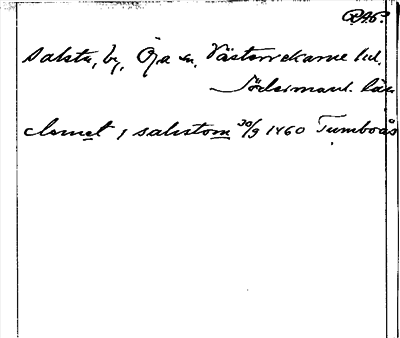 Salsta, by, Öja sn. Västerrekarne hd.
Södermanl. län
clemet j salistom 30/9 1460 Tumboås